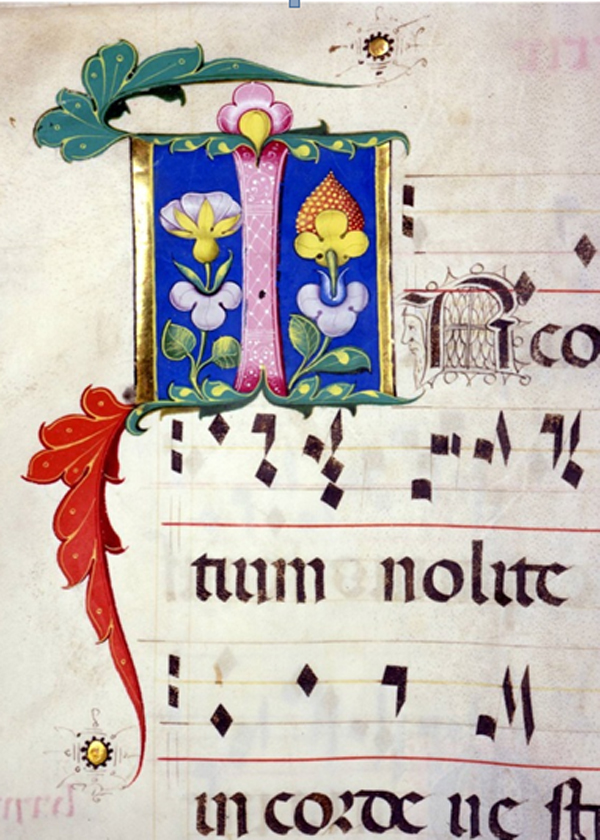 INco
tium nolite
in corde ue ſt